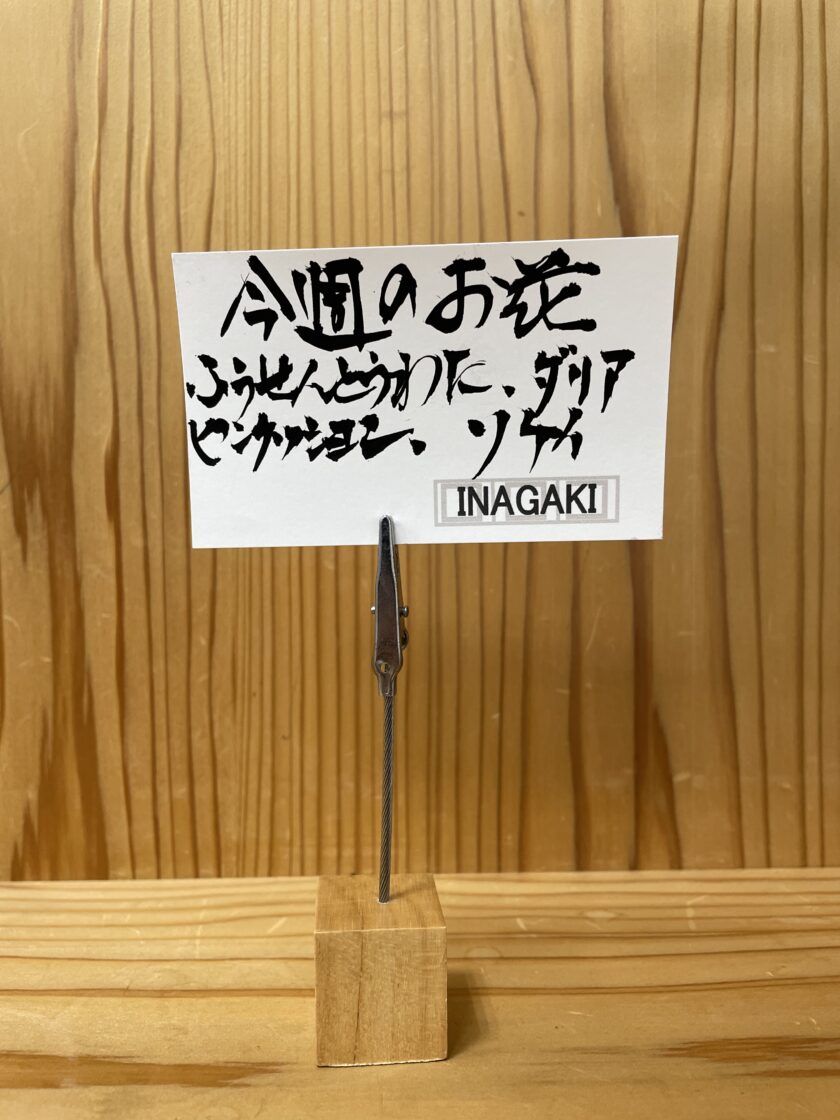 今週のお花
ふうせんとうわた、ダリア
ピンクッション、ソケイ
INAGAKI